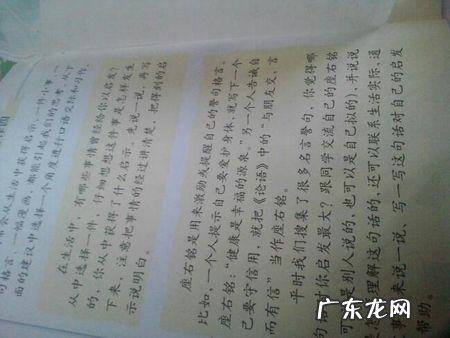 从生活中获得启示。一件小事、
句格言,一幅漫画,都能引起我们的思考。从下
面的建议中选择一个角度进行口语交际和习作。
在生活中,有哪些事情曾经给你以启发?
从中选择一件,仔细想想这件事是怎样发生
的,你从中获得了什么启示,先说一说,再写
下来。注意把事情的经过讲清楚,把得到的启
示说明白。
座右铭是用来激励或提醒自己的警句格言。
比如,一个人提示自己要爱护身体,就写下一个
座右铭:“健康是幸福的源泉。”另一个人告诫自
己要守信用,就把《论语》中的“与朋友交,言
而有信”当作座右铭。
平时我们搜集了很多名言警句,你觉得哪
句话对你启发最大?跟同学交流自己的座右铭
可以是别人说的,也可以是自己拟的),并说说
怎样理解这句话的,还可以联系生活实际,通
事来说一说,写一写这句话对自己的启发
帮助。
广东龙网